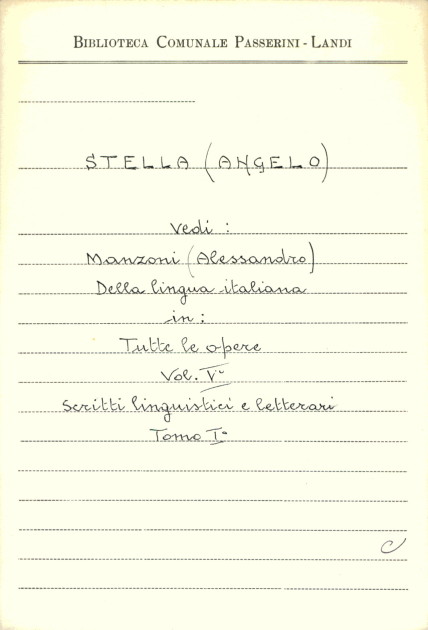 BIBLIOTECA COMUNALE PASSERINI-LANDI
STELLA (ANGELO)
Vedi :
Manzoni (Alessandro)
Della lingua italiana
in :
Tutte le opere
Vol. Vº
Scritti linguistici e letterari
Tomo Iº
C